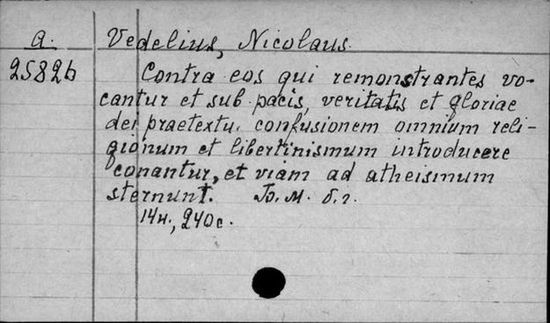 a. Vedelius, Nicolaus.
25826 Contra eos qui remonstrantes vo-
cantur et sub pacis, veritatis et gloriae
dei praetextu, confusionem omnium reli-
gionum et libertinismum introducere
conantur, et viam ad atheismum
sternunt. Б. м. б. г.
14н., 240с.